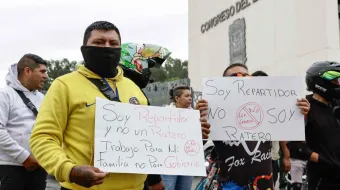 CONGRESO DEL E
Soy Repartidor
y no un Ratero
Trabajo Para Mi
Familia no Para
Soy REPARTIDOR
NO SOY
RATERO
Fox RA